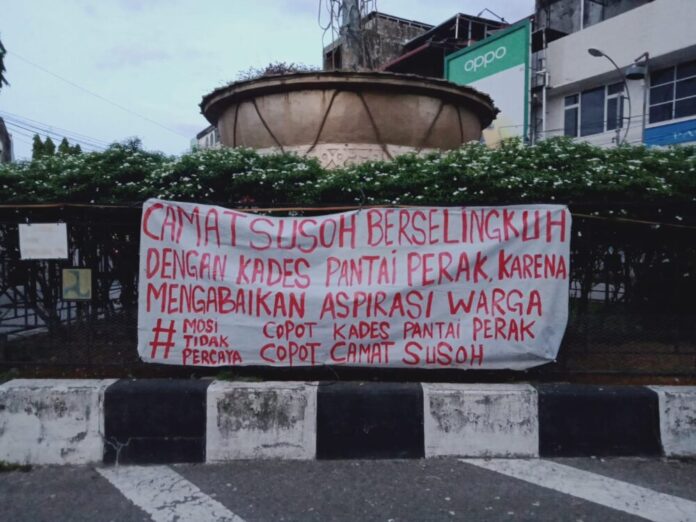 oppo
CAMAT SUSOH BERSELINGKUH
DENGAN KADES PANTAI PERAK, KARENA
MENGABAIKAN ASPIRASI WARGA
# MOSI TIDAK PERCAYA
COPOT KADES PANTAI PERAK
COPOT CAMAT SUSOH